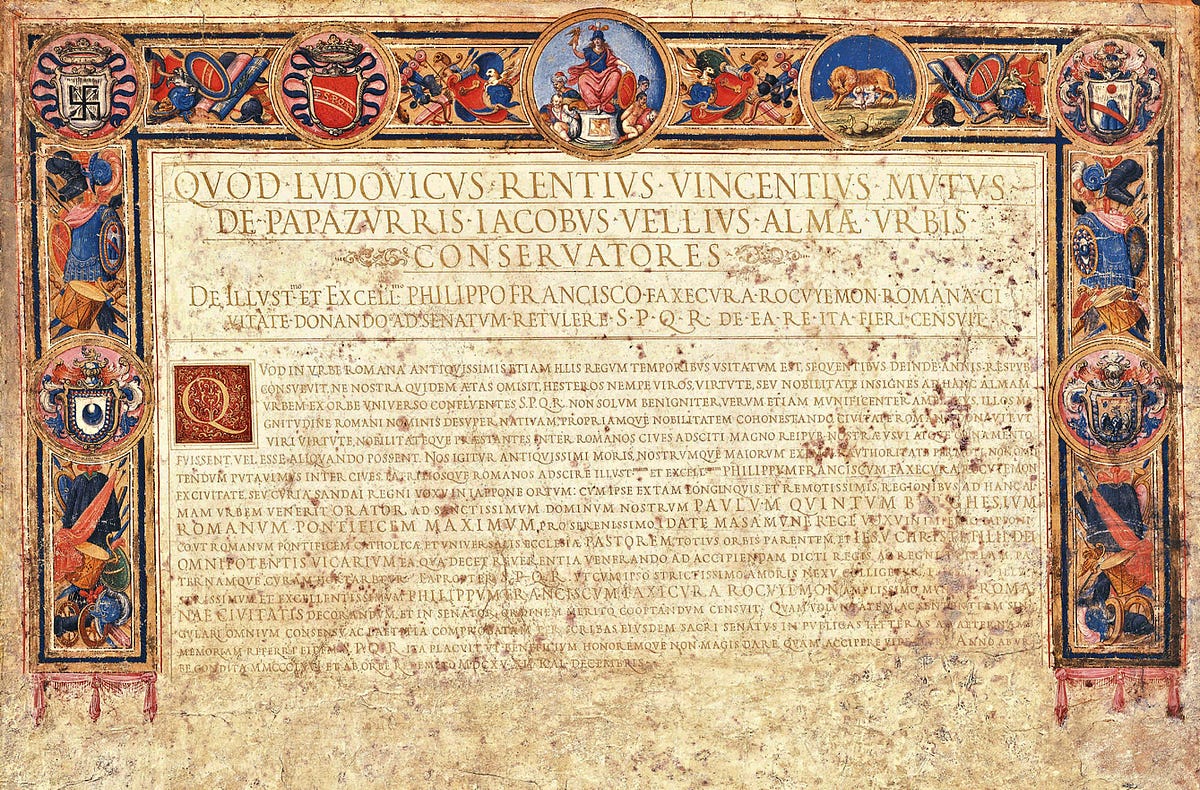 S.P.Q.R.
QVOD·LVDOVICVS·RENTIVS·VINCENTIVS·MVTVS
DE·PAPAZVRRIS·IACOBVS·VELLIVS·ALMÆ·VRBIS
CONSERVATORES
DE ILLVST.mo ET EXCELL.mo PHILIPPO FRANCISCO·FAXECVRA·ROCVYEMON·ROMANA·CI
VITATE·DONANDO·AD SENATVM·RETVLERE·S·P·Q·R· DE·EA·RE·ITA·FIERI·CENSVIT
QVOD IN VRBE ROMANA ANTIQVISSIMIS ETIAM ILLIS REGVM TEMPORIBVS VSITATVM EST, SEQVENTIBVS DEINDE ANNIS RESPVB
CONSVEVIT, NE NOSTRA QVIDEM ÆTAS OMISIT, HESTEROS NEMPE VIROS, VIRTVTE, SEV NOBILITATE INSIGNES AD HANC ALMAM
VRBEM EX ORBE VNIVERSO CONFLVENTES S.P.Q.R. NON SOLVM BENIGNITER, VERVM ETIAM MVNIFICENTER
GNITVDINE ROMANI NOMINIS DESVPER, NATIVAM, PROPRIAMQVE NOBILITATEM COHONESTANDO, CIVITATE ROMANA DONAVIT, VT
VIRI VIRTVTE, NOBILITATEQVE PRÆSTANTES INTER ROMANOS CIVES ADSCITI MAGNO REIPVB. NOSTRÆ VSVI ATQVE ORNAMENTO
FVISSENT, VEL ESSE ALIQVANDO POSSENT. NOS IGITVR ANTIQVISSIMI MORIS, NOSTRVMQVE MAIORVM AVTHORITATE
TENDVM PVTAVIMVS INTER CIVES PATRITIOSQVE ROMANOS ADSCIRE ILLVST. ET EXCELL. PHILIPPVM FRANCISCVM FAXECVRA ROCVYEMON
EX CIVITATE, SEV CVRIA SANDAI REGNI VOXV IN IAPPONE ORTVM: CVM IPSE EX TAM LONGINQVIS, ET REMOTISSIMIS REGIONIBVS AD HANC AL
MAM VRBEM VENERIT ORATOR AD SANCTISSIMVM DOMINVM NOSTRVM PAVLVM QVINTVM BVRGHESIVM
ROMANVM PONTIFICEM MAXIMVM, PRO SERENISSIMO IDATE MASAMVNE REGE VOXV IN
CO, VT ROMANVM PONTIFICEM CATHOLICÆ ET VNIVERSALIS ECCLESIÆ PASTOREM, TOTIVS ORBIS PARENTEM, ET IESV CHRISTI FILII DEI
OMNIPOTENTIS VICARIVM EA, QVA DECET REVERENTIA VENERANDO AD ACCIPIENDAM DICTI REGIS, AC REGNI
TERNAMQVE CVRAM HORTARETVR. EAPROPTER S.P.Q.R. VT CVM IPSO STRICTISSIMO AMORIS NEXV COLLIGETVR
ET EXCELLENTISSIMVM PHILIPPVM FRANCISCVM FAXECVRA ROCVYEMON AMPLISSIMO ROMA
NÆ CIVITATIS DECORANDVM, ET IN SENATORVM ORDINEM MERITO COOPTANDVM CENSVIT. QVAM VOLVNTATEM, AC SENTENTIAM SIN
GVLARI OMNIVM CONSENSV, AC LAETITIA COMPROBATAM PER SCRIBAS EIVSDEM SACRI SENATVS IN PVBLICAS LITTERAS AD ÆTERNAM
MEMORIAM REFERRE S.P.Q.R. ITA PLACVIT, VT BENEFICIVM HONOREMQVE NON MAGIS DARE QVAM ACCIPERE ANNO AB VR
BE CONDITA ET AB ORBE REDEMPTO MDCXV XII KAL DECEMBRIS